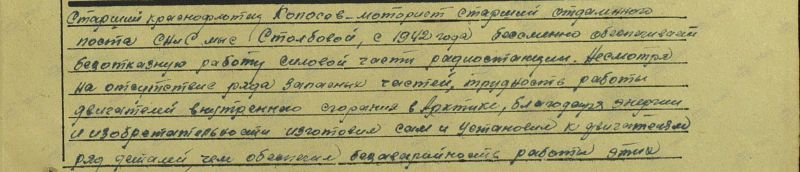 Старший краснофлотец Копосов – моторист старший отдаленного
поста СНиС мыс Столбовой, с 1942 года бессменно обеспечивает
безотказную работу силовой части радиостанции. Несмотря
на отсутствие ряда запасных частей, трудность работы
двигателей внутреннего сгорания в Арктике, благодаря энергии
и изобретательности изготовил сам и установил к двигателям
ряд деталей, чем обеспечил безаварийность работы этих